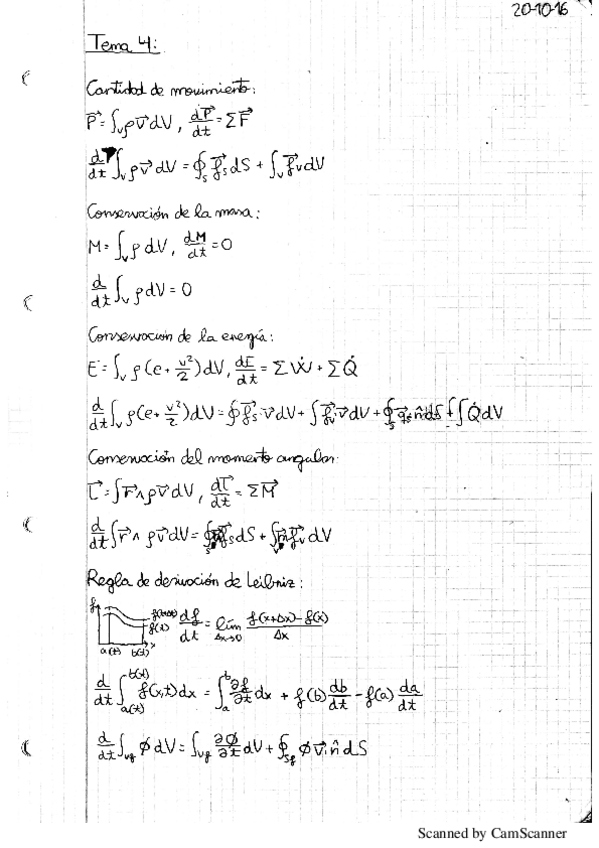 20-10-16
Tema 4:
Cantidad de movimiento:
P⃗ = ∫_V ρ v⃗ dV , dP⃗/dt = Σ F⃗
d/dt ∫_V ρ v⃗ dV = ∮_S f⃗_S dS + ∫_V f⃗_V dV
Conservación de la masa:
M = ∫_V ρ dV , dM/dt = 0
d/dt ∫_V ρ dV = 0
Conservación de la energía:
E = ∫_V ρ (e + v²/2) dV , dE/dt = Σ Ẇ + Σ Q̇
d/dt ∫_V ρ (e + v²/2) dV = ∮ f⃗_S · v⃗ dV + ∫ f⃗_V · v⃗ dV + ∮_S q⃗_S n̂ dS + ∫ Q̇ dV
Conservación del momento angular:
L⃗ = ∫ r⃗ ∧ ρ v⃗ dV , dL⃗/dt = Σ M⃗
d/dt ∫ r⃗ ∧ ρ v⃗ dV = ∮_S f⃗_S dS + ∫_V f⃗_V dV
Regla de derivación de Leibniz:
f f(x+Δx) f(x) a(t) b(t) x
df/dt = lím_{Δx→0} (f(x+Δx) - f(x))/Δx
d/dt ∫_{a(t)}^{b(t)} f(x,t) dx = ∫_a^b ∂f/∂t dx + f(b) db/dt - f(a) da/dt
d/dt ∫_{Vf} ϕ dV = ∫_{Vf} ∂ϕ/∂t dV + ∮_{Sf} ϕ v⃗ · n̂ dS
Scanned by CamScanner